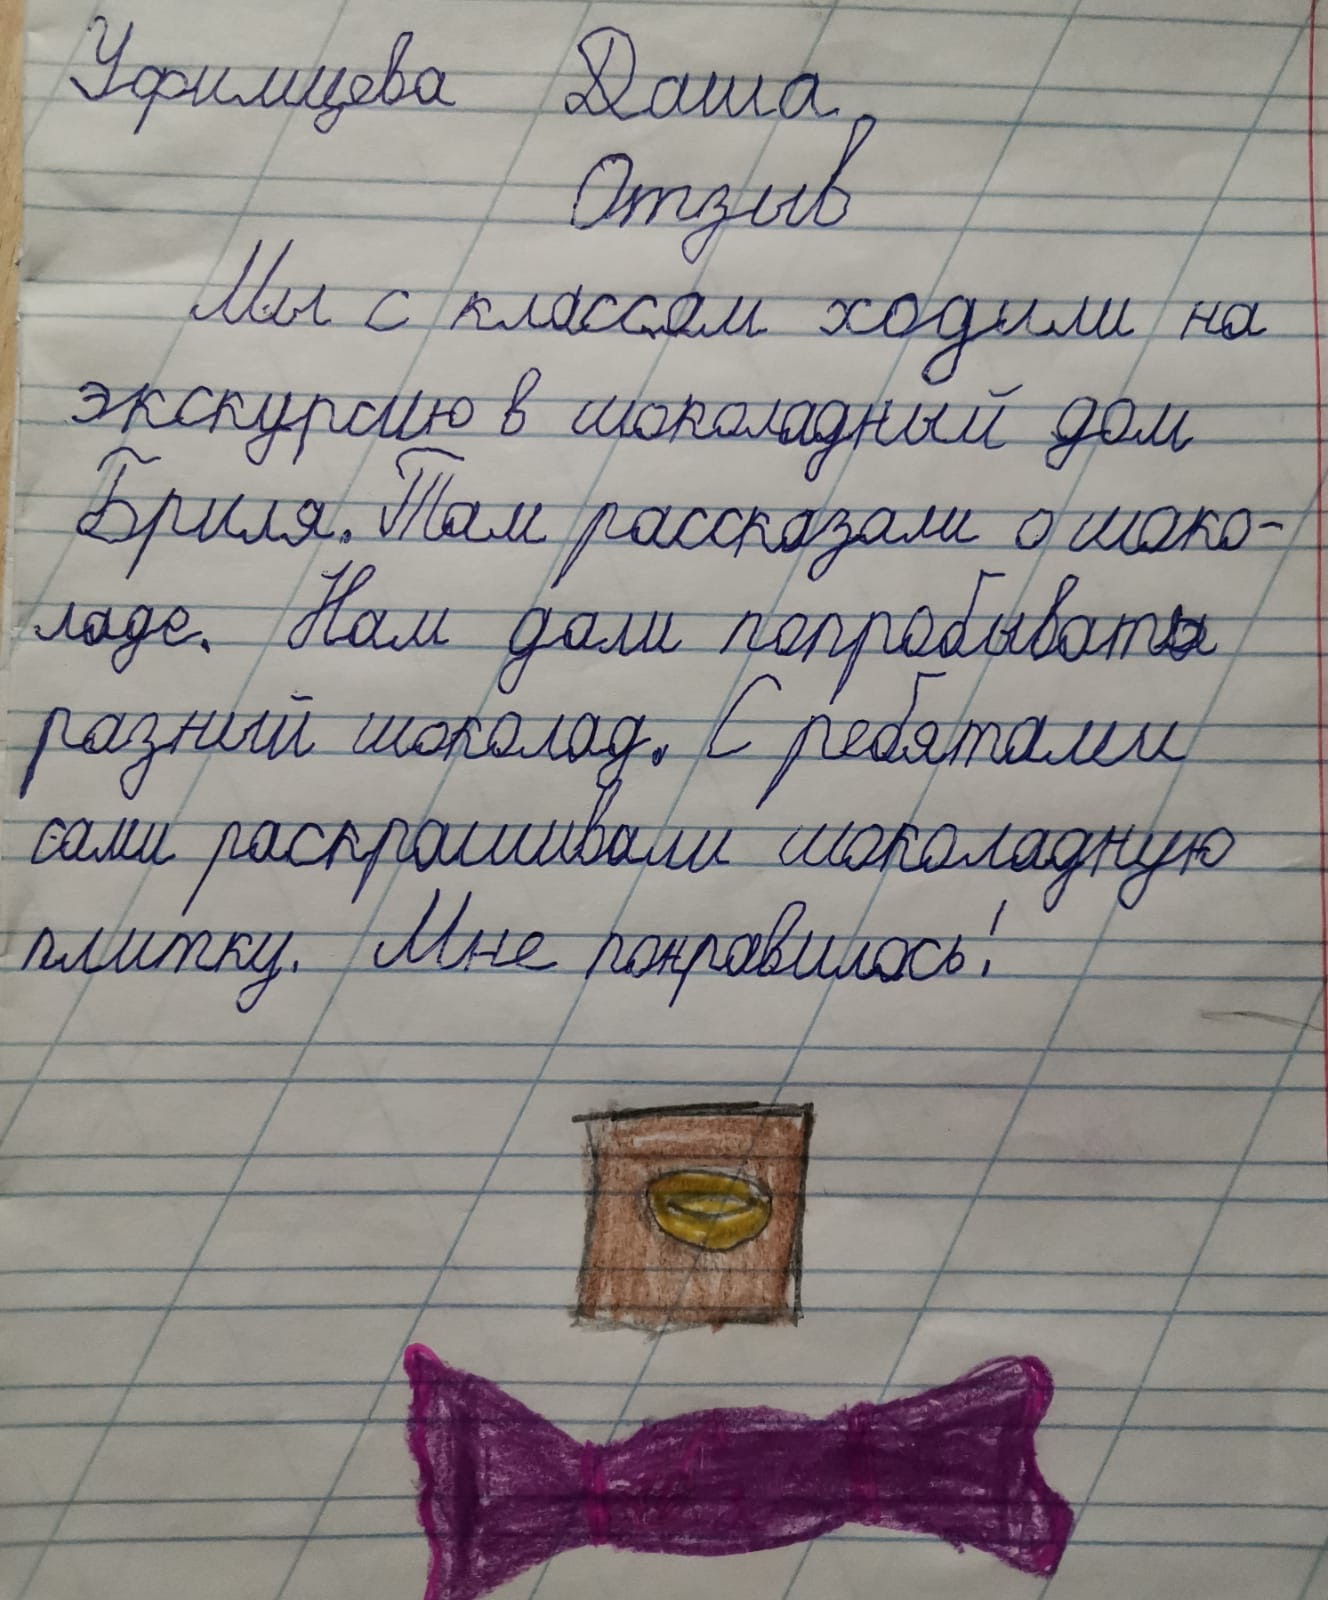 Уфимцева Даша
Отзыв
Мы с классом ходили на
экскурсию в шоколадный дом
Бриля. Там рассказали о шоко-
ладе. Нам дали попробывать
разный шоколад. С ребятами
сами раскрашивали шоколадную
плитку. Мне понравилось!